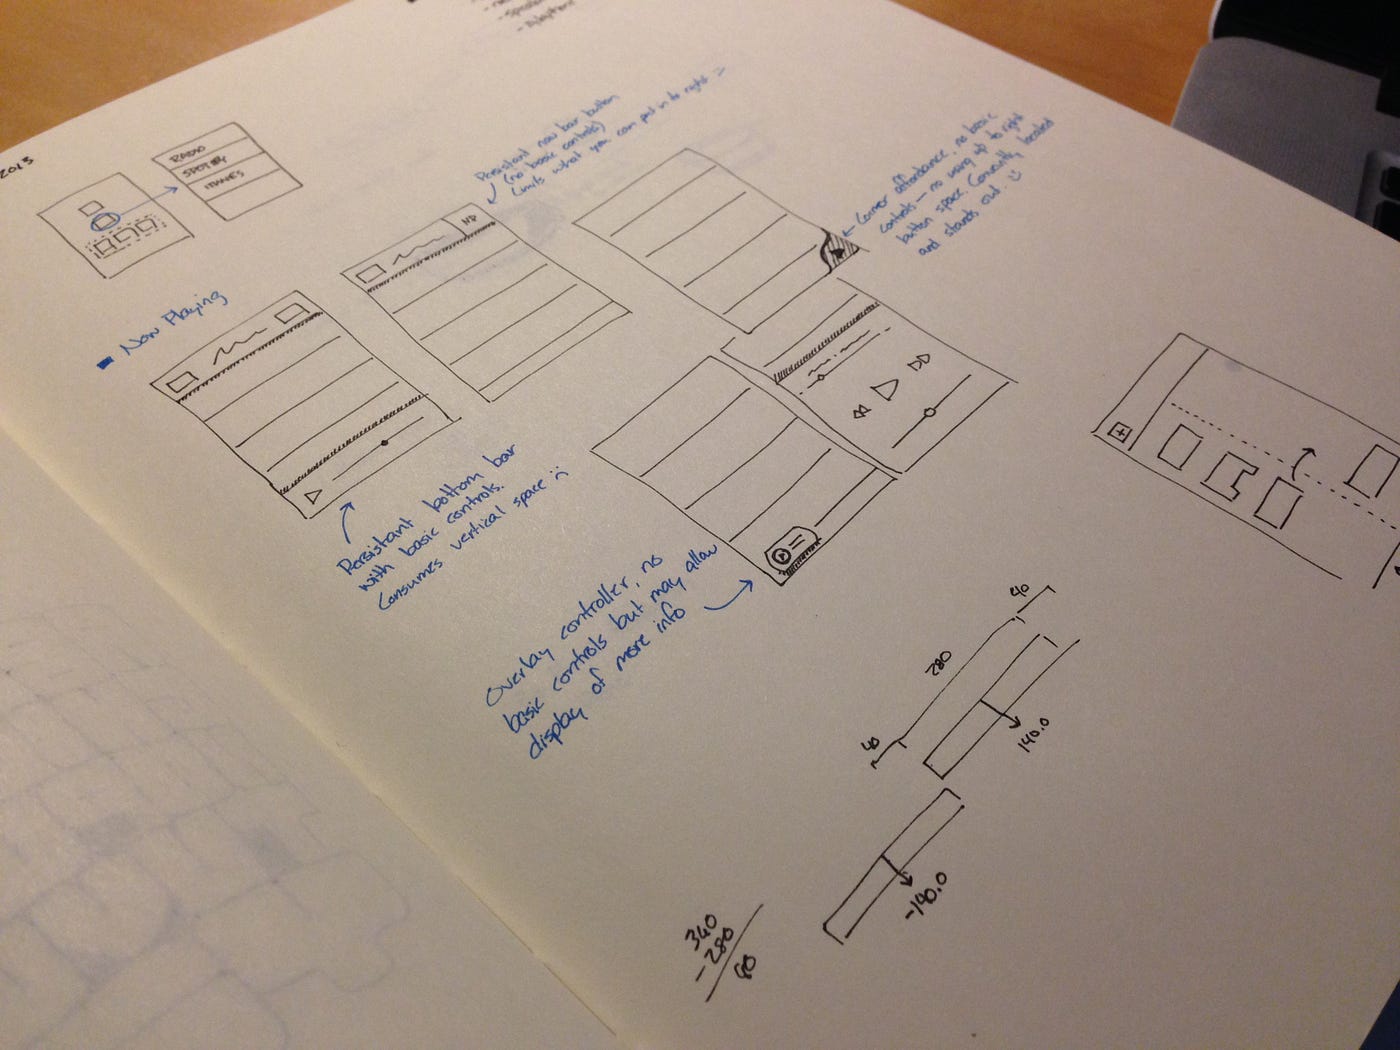 2013
RADIO
SPOTIFY
ITUNES
Now Playing
NP
Persistant nav bar button
(no basic controls)
Limits what you can put in to right :-/
Corner affordance, no basic
controls — no using up to right
button space. Conveniently located
and stands out. :)
Persistant bottom bar
with basic controls.
Consumes vertical space :(
Overlay controller, no
basic controls but may allow
display of more info
40
280
40
140.0
-140.0
340
-280
60